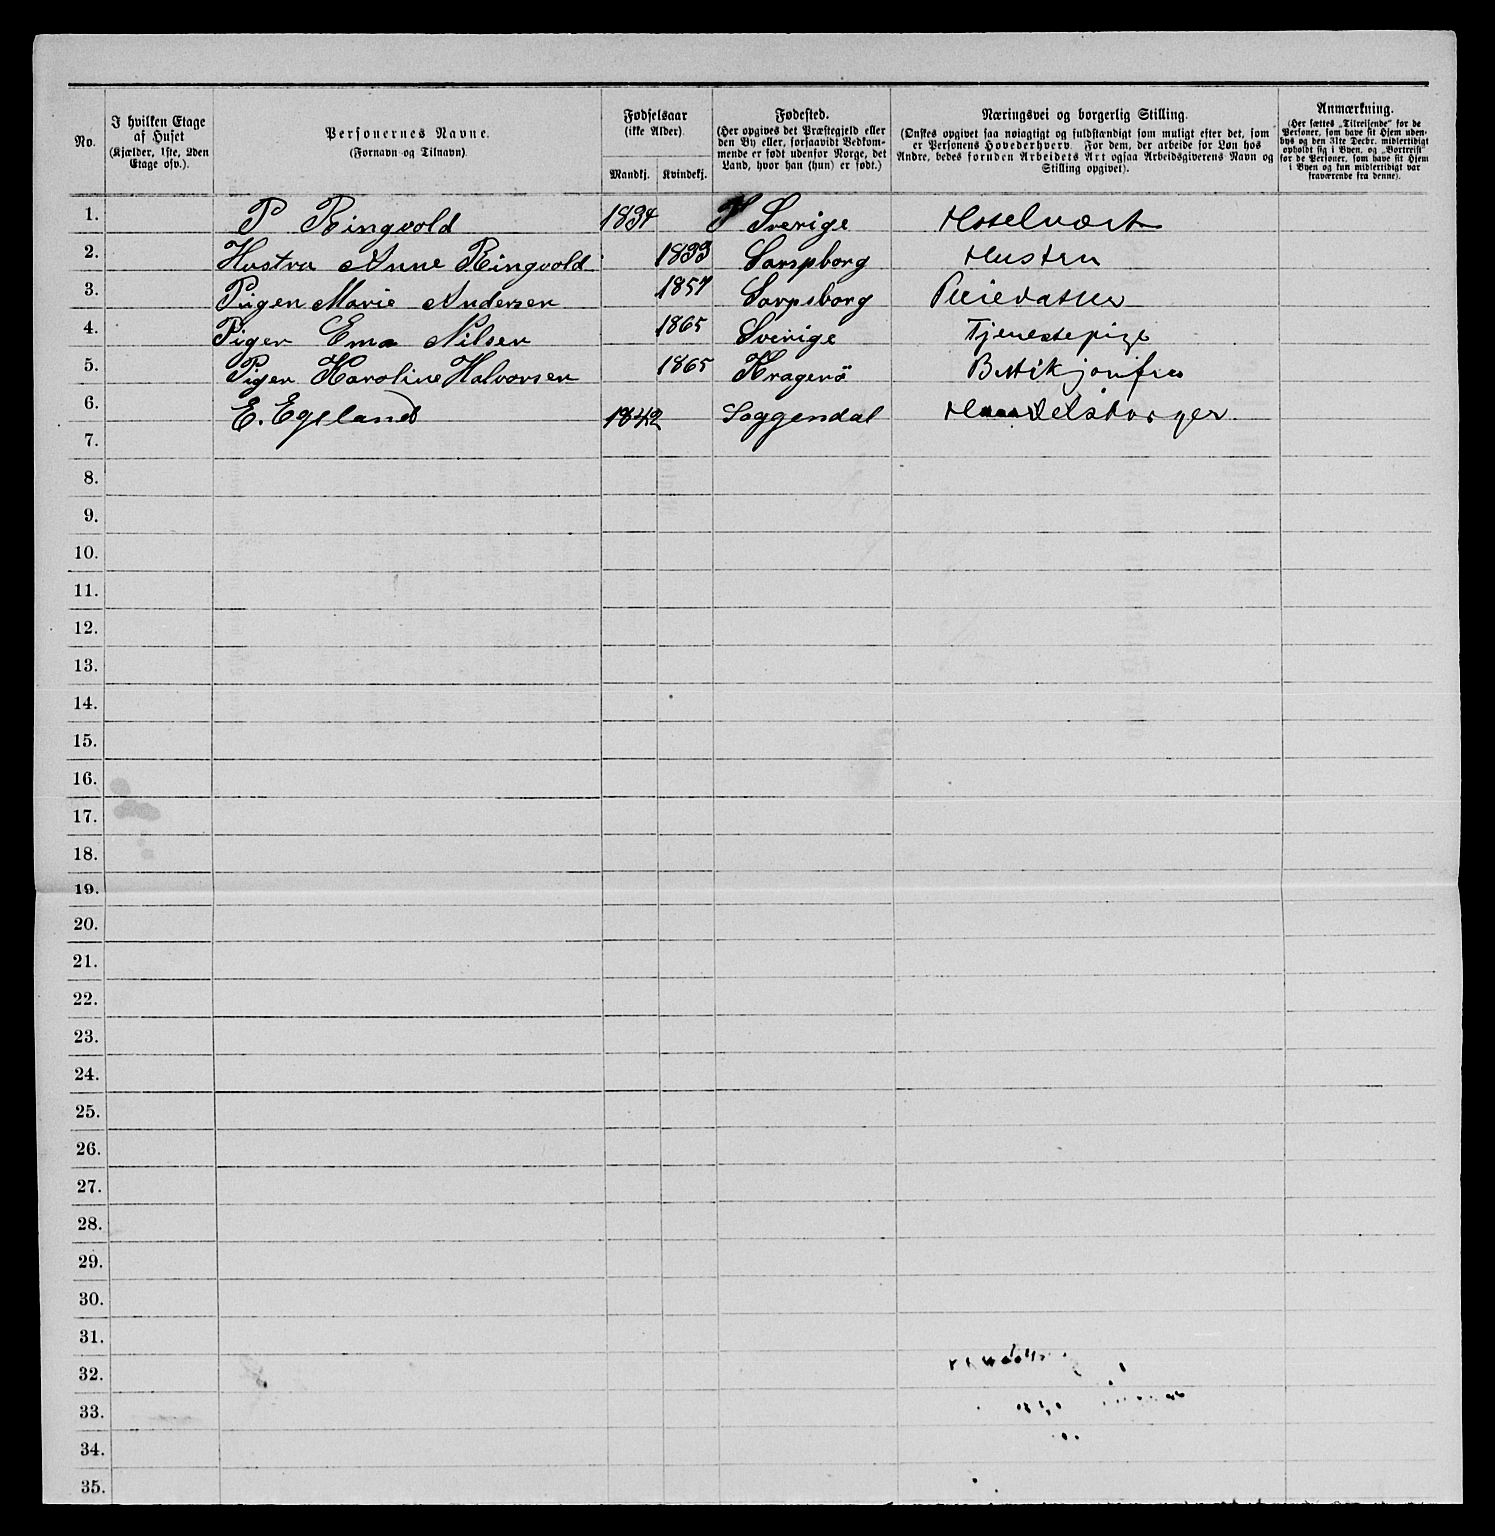 No.
I hvilken Etage
af Huset
(Kjælder, 1ste, 2den
Etage osv.).
Personernes Navne.
(Fornavn og Tilnavn).
Fødselsaar
(ikke Alder).
Mandkj. Kvindekj.
Fødested.
(Her opgives det Præstegjeld eller
den By eller, forsaavidt Vedkom-
mende er født udenfor Norge, det
Land, hvor han (hun) er født.)
Næringsvei og borgerlig Stilling.
(Ønskes opgivet saa nøiagtigt og fuldstændigt som muligt efter det, som
er Personens Hovederhverv. For dem, der arbeide for Løn hos
Andre, bedes foruden Arbeidets Art ogsaa Arbeidsgiverens Navn og
Stilling opgivet).
Anmærkning.
(Her sættes „Tilreisende" for de
Personer, som have sit Hjem uden-
bys og den 31te Decbr. midlertidigt
opholdt sig i Byen, og „Bortreist"
for de Personer, som have sit Hjem
i Byen og kun midlertidigt var
fraværende fra denne).
1. P Ringvold 1834 Sverige Hotelvært
2. Hustru Anne Ringvold 1833 Sarpborg Hustru
3. Pigen Marie Andersen 1857 Sarpsborg
4. Pigen Ema Nilsen 1865 Sverige Tjenestepige
5. Pigen Karoline Halvorsen 1865 Kragerö
6. E. Egeland 1842 Soggendal Handelsborger
7.
8.
9.
10.
11.
12.
13.
14.
15.
16.
17.
18.
19.
20.
21.
22.
23.
24.
25.
26.
27.
28.
29.
30.
31.
32.
33.
34.
35.